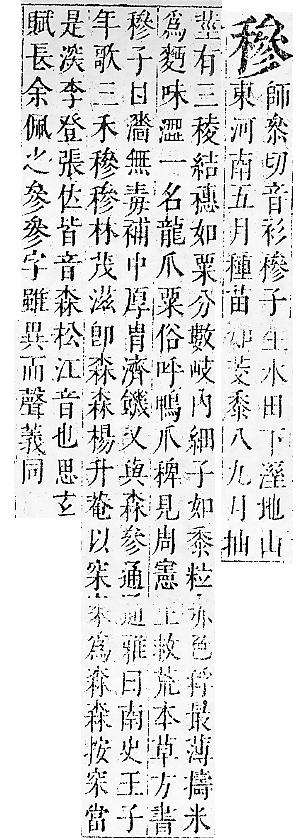 穇
師叅切音衫穇子生水田下溼地山
東河南五月種苗如茭黍八九月抽
莖有三稜結穗如粟分數岐內細子如黍粒赤色稃最薄擣米
為麪味澀一名龍爪粟俗呼鴨爪稗見周憲王救荒本草方書
穇子曰濇無毒補中厚胃濟饑又與森參通通雅曰南史王子
年歌三禾穇穇林茂滋卽森森楊升菴以穼穼為森森按穼當
是淡李登張佐皆音森松江音也思玄
賦長余佩之參參字雖異而聲義同